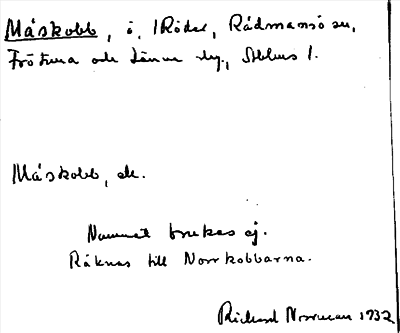 Måskobb, ö, I Röder, Rådmansö sn,
Frötuna och Länna slg., Sthlms l.
Måskobb, sk.
Namnet brukas ej.
Räknas till Norrkobbarna.
Rickard Norrman 1932